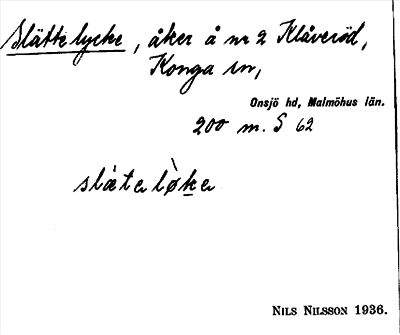 Slätte lycke, åker å nr 2 Klåveröd,
Konga sn,
Onsjö hd, Malmöhus län.
200 m. S 62
slàtelø̀ke
NILS NILSSON 1936.